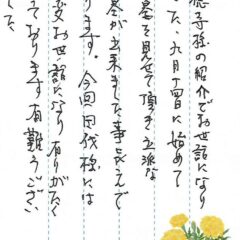 恵子様の紹介でお世話になり
した、九月十四日に始めて
墓を見せて頂き立派な
墓が出来ました事考えて
ります。今回田代様には
変お世話になりありがたく
っております有難うござい
した